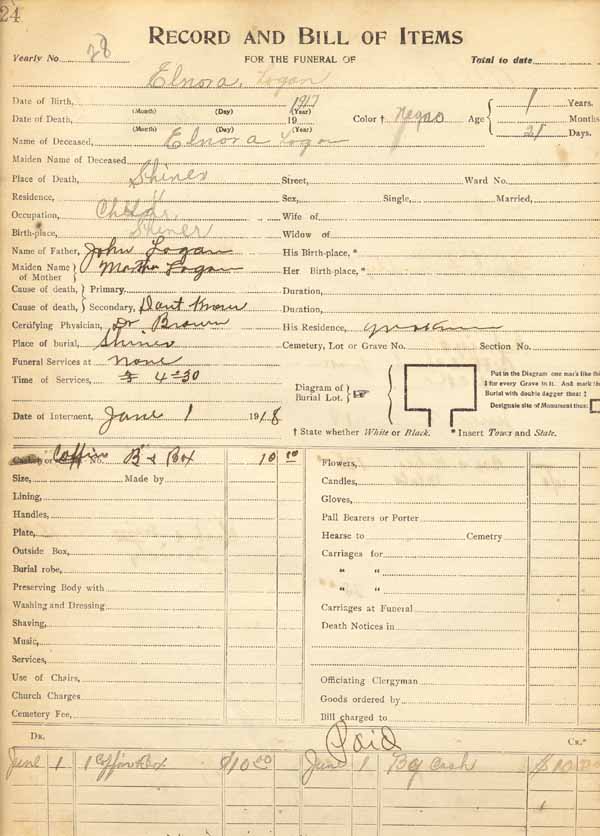 24
RECORD AND BILL OF ITEMS
Yearly No. 28 FOR THE FUNERAL OF Total to date
Elnora Logan
Date of Birth, 1917
(Month) (Day) (Year)
Date of Death, 19 Color † Negro Age { 1 Years. Months 21 Days.
(Month) (Day) (Year)
Name of Deceased Elnora Logan
Maiden Name of Deceased
Place of Death, Shiner Street, Ward No.
Residence, " Sex, Single, Married,
Occupation, Wife of
Birth-place, Shiner Widow of
Name of Father, John Logan His Birth-place, *
Maiden Name of Mother } Martha Logan Her Birth-place, *
Cause of death, } Primary. Duration,
Cause of death, } Secondary, Dont Know Duration,
Certifying Physician, Dr Brown His Residence, Yoakum
Place of burial, Shiner Cemetery, Lot or Grave No. Section No.
Funeral Services at None
Time of Services, 4 30
Diagram of Burial Lot. }
Put in the Diagram one mark like thi
I for every Grave in it. And mark th
Burial with double dagger thus: ‡
Designate site of Monument thus:
Date of Interment, June 1 1918
† State whether White or Black. * Insert Town and State.
Coffin No. B & Box 10 00 Flowers,
Size, Made by Candles,
Lining, Gloves,
Handles, Pall Bearers or Porter
Plate, Hearse to Cemetry
Outside Box, Carriages for
Burial robe, " "
Preserving Body with " "
Washing and Dressing Carriages at Funeral
Shaving, Death Notices in
Music,
Services,
Use of Chairs, Officiating Clergyman
Church Charges Goods ordered by
Cemetery Fee, Bill charged to
DR. Paid CR.*
June 1 1 Coffin & Box $10 00 June 1 By Cash $10.00